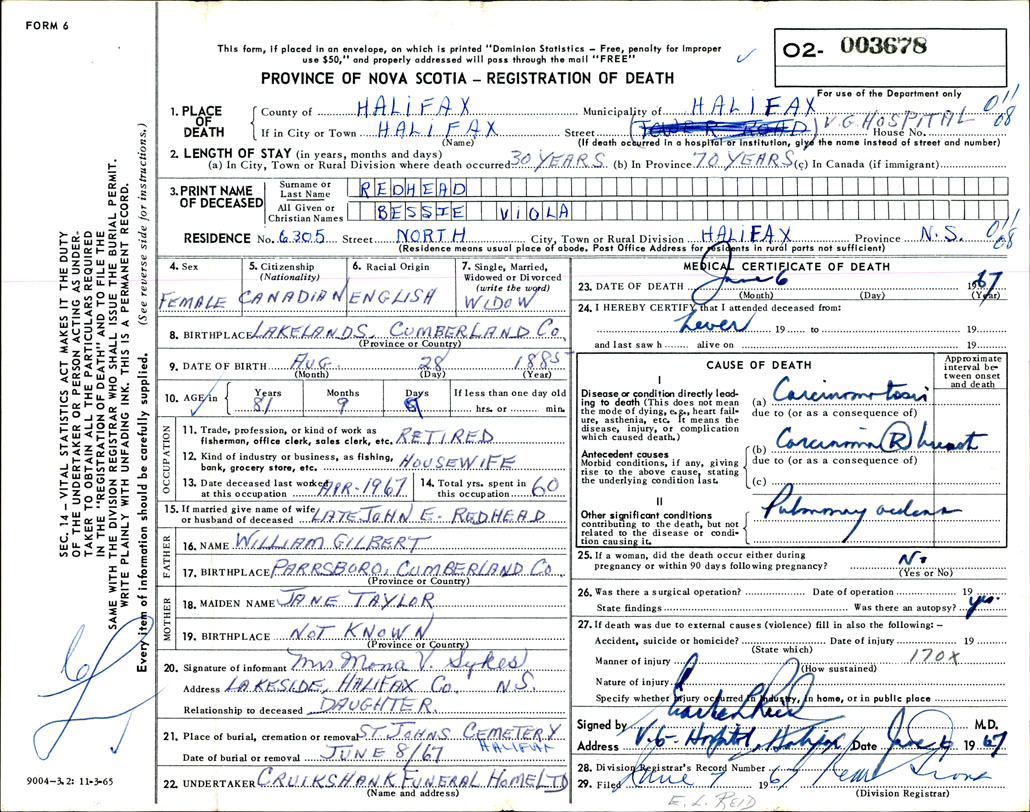 FORM 6
This form, if placed in an envelope, on which is printed "Dominion Statistics – Free, penalty for improper
use $50," and properly addressed will pass through the mail "FREE"
O2- 003678
PROVINCE OF NOVA SCOTIA – REGISTRATION OF DEATH
For use of the Department only
011
08
1. PLACE OF DEATH
County of HALIFAX Municipality of HALIFAX
If in City or Town HALIFAX Street TOWER ROAD V.G. HOSPITAL House No.
(Name) (If death occurred in a hospital or institution, give the name instead of street and number)
2. LENGTH OF STAY (in years, months and days)
(a) In City, Town or Rural Division where death occurred 30 YEARS (b) In Province 70 YEARS (c) In Canada (if immigrant)
3. PRINT NAME OF DECEASED
Surname or Last Name REDHEAD
All Given or Christian Names BESSIE VIOLA
RESIDENCE No. 6305 Street NORTH City, Town or Rural Division HALIFAX Province N.S.
011
08
(Residence means usual place of abode. Post Office Address for residents in rural parts not sufficient)
4. Sex
FEMALE
5. Citizenship
(Nationality)
CANADIAN
6. Racial Origin
ENGLISH
7. Single, Married,
Widowed or Divorced
(write the word)
WIDOW
8. BIRTHPLACE LAKELANDS, CUMBERLAND CO.
(Province or Country)
9. DATE OF BIRTH AUG. 28 1885
(Month) (Day) (Year)
10. AGE in
Years Months Days If less than one day old
81 9 hrs. or min.
OCCUPATION
11. Trade, profession, or kind of work as
fisherman, office clerk, sales clerk, etc. RETIRED
12. Kind of industry or business, as fishing,
bank, grocery store, etc. HOUSEWIFE
13. Date deceased last worked
at this occupation APR-1967
14. Total yrs. spent in
this occupation 60
15. If married give name of wife
or husband of deceased LATE JOHN E. REDHEAD
FATHER
16. NAME WILLIAM GILBERT
17. BIRTHPLACE PARRSBORO, CUMBERLAND CO.
(Province or Country)
MOTHER
18. MAIDEN NAME JANE TAYLOR
19. BIRTHPLACE NOT KNOWN
(Province or Country)
20. Signature of informant Mrs Mona V. Sykes
Address LAKESIDE, HALIFAX Co. N.S.
Relationship to deceased DAUGHTER.
21. Place of burial, cremation or removal ST JOHNS CEMETERY
HALIFAX
Date of burial or removal JUNE 8/67
22. UNDERTAKER CRUIKSHANK FUNERAL HOME LTD
(Name and address)
MEDICAL CERTIFICATE OF DEATH
23. DATE OF DEATH June 6 1967
(Month) (Day) (Year)
24. I HEREBY CERTIFY that I attended deceased from:
19 to 19
and last saw h alive on 19
CAUSE OF DEATH
Approximate
interval be-
tween onset
and death
I
Disease or condition directly lead-
ing to death (This does not mean
the mode of dying, e.g., heart fail-
ure, asthenia, etc. It means the
disease, injury, or complication
which caused death.)
(a) Carcinomatosis
due to (or as a consequence of)
Antecedent causes
Morbid conditions, if any, giving
rise to the above cause, stating
the underlying condition last.
(b) Carcinoma R breast
due to (or as a consequence of)
(c)
II
Other significant conditions
contributing to the death, but not
related to the disease or condi-
tion causing it.
Pulmonary oedema
25. If a woman, did the death occur either during
pregnancy or within 90 days following pregnancy? No
(Yes or No)
26. Was there a surgical operation? Date of operation 19
State findings Was there an autopsy? yes.
27. If death was due to external causes (violence) fill in also the following: –
Accident, suicide or homicide? Date of injury 19
(State which)
Manner of injury 170X
(How sustained)
Nature of injury
Specify whether injury occurred in industry, in home, or in public place
Signed by M.D.
Address V.G. Hospital, Halifax Date June 1967
28. Division Registrar's Record Number
29. Filed June 7 1967
(Division Registrar)
E. L. REID
9004-3.2: 11-3-65
SEC. 14 – VITAL STATISTICS ACT MAKES IT THE DUTY
OF THE UNDERTAKER OR PERSON ACTING AS UNDER-
TAKER TO OBTAIN ALL THE PARTICULARS REQUIRED
IN THE "REGISTRATION OF DEATH" AND TO FILE THE
SAME WITH THE DIVISION REGISTRAR WHO SHALL ISSUE THE BURIAL PERMIT.
WRITE PLAINLY WITH UNFADING INK. THIS IS A PERMANENT RECORD.
Every item of information should be carefully supplied. (See reverse side for instructions.)